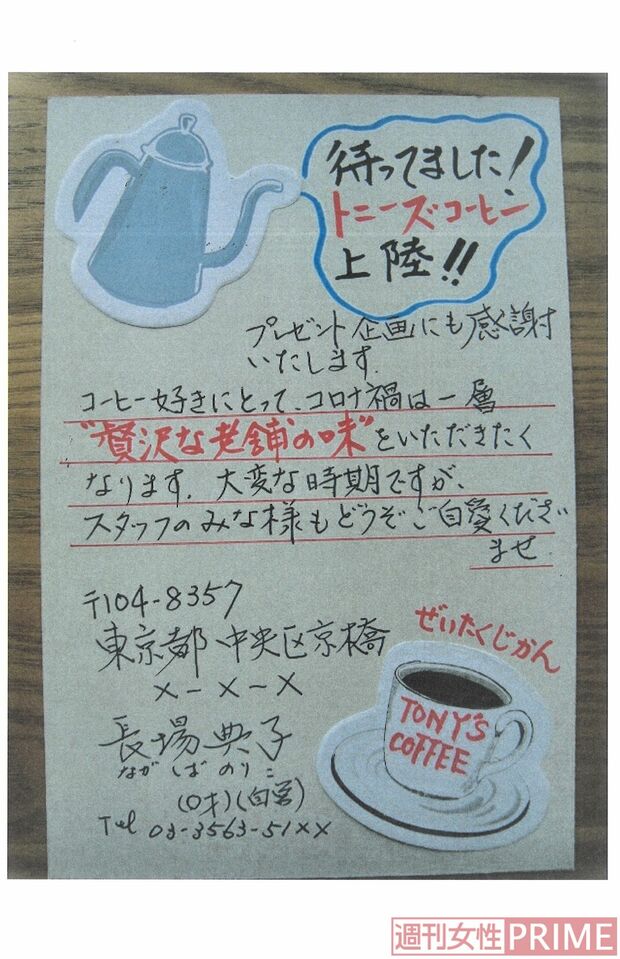 待ってました!
トニーズコーヒー
上陸!!
プレゼント企画にも感謝
いたします.
コーヒー好きにとって、コロナ禍は一層
"贅沢な老舗の味"をいただきたく
なります. 大変な時期ですが、
スタッフのみな様もどうぞご自愛くださ
ませ.
〒104-8357
東京都中央区京橋
×-×-×
長場典子
ながばのりこ
(〇才)(自営)
Tel 03-3563-51××
ぜいたくじかん
TONY'S
COFFEE
週刊女性PRIME